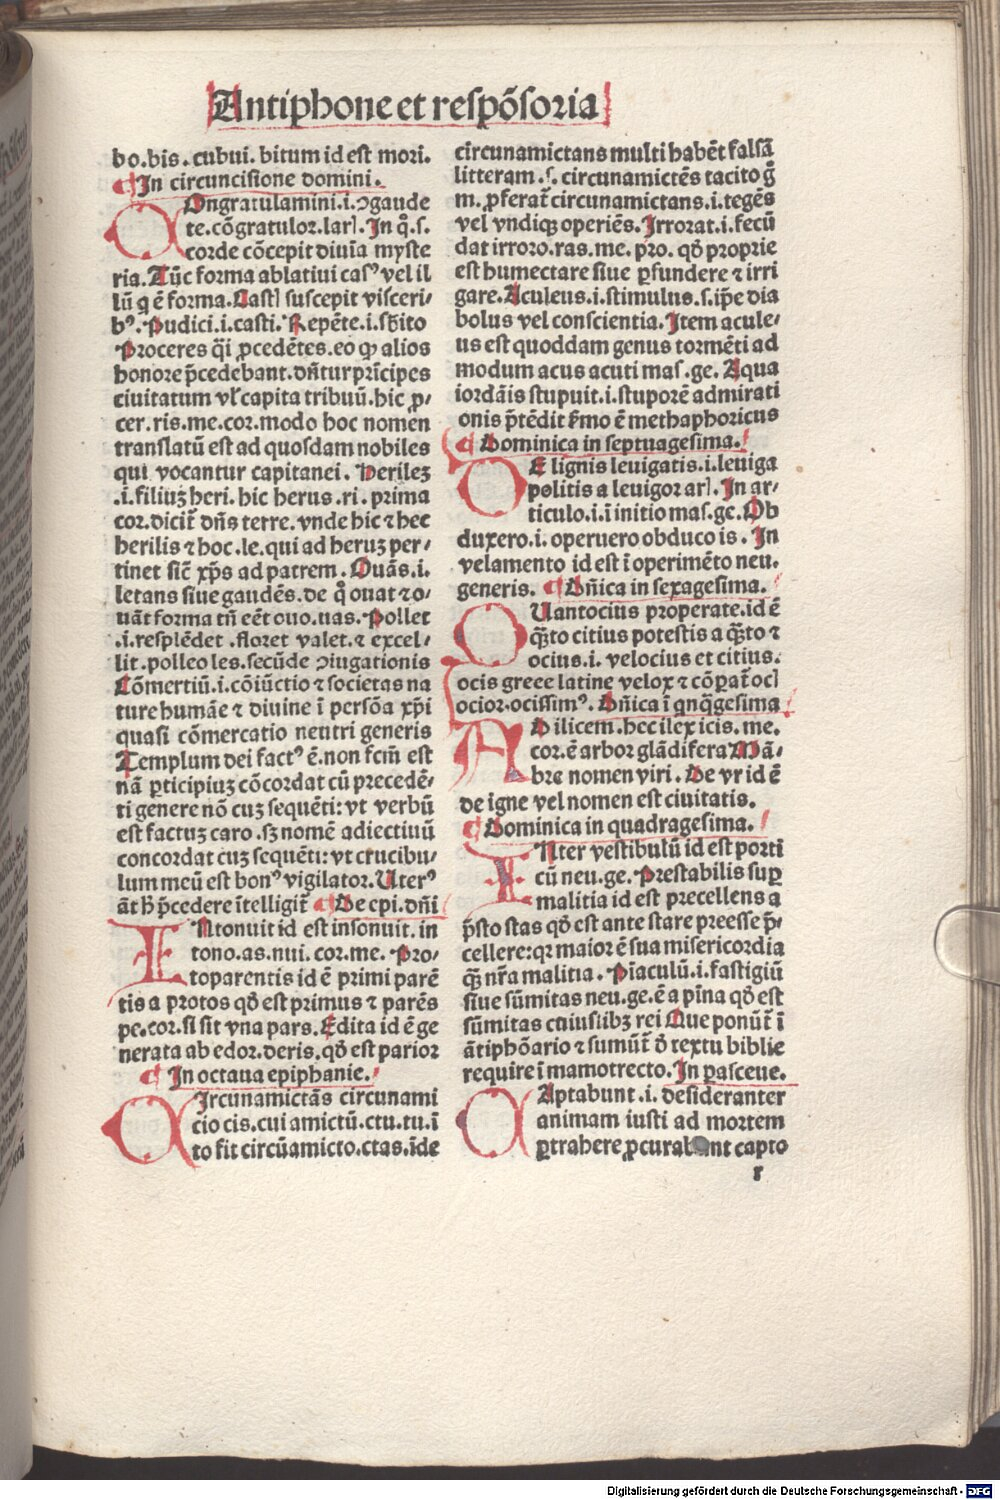 Antiphone et respõsoria
bo.bis.cubui.bitum id est mori.
¶ In circuncisione domini.
COngratulamini.i.ↄgaude
te.cõgratulor.lar.In q̊.s.
corde cõcepit diuĩa myste
ria.Tũc forma ablatiui casꝰ vel il
lũ q ẽ forma.Cast suscepit visceri⸗
bꝰ.Pudici.i.casti.Repẽte.i.sbito
Proceres q̃i ꝓcedẽtes.eo ꝙ alios
honore p̃cedebant.dñtur prĩcipes
ciuitatum vł capita tribuũ.hic ꝓ⸗
cer.ris.me.cor.modo hoc nomen
translatũ est ad quosdam nobiles
qui vocantur capitanei.Herilez
.i.filiuz heri.hic herus.ri.prima
cor.dicit̃ dñs terre.vnde hic ⁊ hec
herilis ⁊ hoc.le.qui ad heruz per⸗
tinet sic̃ xp̃s ad patrem.Ouãs.i.
letans siue gaudẽs.de q̊ ouat ⁊ o⸗
uãt forma tñ eẽt ouo.uas.Pollet
.i.resplẽdet.floret valet.⁊ excel⸗
lit.polleo les.secũde ↄiugationis
Cõmertiũ.i.cõiũctio ⁊ societas na
ture humãe ⁊ diuine ĩ persõa xp̃i
quasi cõmercatio neutri generis
Templum dei factꝰ ẽ.non fcm̃ est
nã ꝑticipiuz cõcordat cũ precedẽ⸗
ti genere nõ cuz sequẽti:vt verbũ
est factuz caro.sꝫ nomẽ adiectiuũ
concordat cuz sequẽti:vt crucibu⸗
lum meũ est bonꝰ vigilator.Uterꝰ
ãt h̃ p̃cedere ĩtelligit̃ ¶ De epi.dñi
INtonuit id est insonuit.in
tono.as.nui.cor.me.Pro⸗
toparentis id ẽ primi parẽ
tis a protos qđ est primus ⁊ parẽs
pe.cor.si sit vna pars.Edita id ẽ ge
nerata ab edor.deris.qđ est parior
¶ In octaua epiphanie.
CIrcunamictãs circunami
cio cis.cui amictũ.ctu.tu.ĩ
to fit circũamicto.ctas.ĩde
circunamictans multi habẽt falsã
litteram.s.circunamictẽs tacito g̃
m.ꝓferat̃ circunamictans.i.tegẽs
vel vndiqꝫ operiẽs.Irrorat.i.fecũ
dat irroro.ras.me.pro.qđ proprie
est humectare siue ꝑfundere ⁊ irri
gare.Aculeus.i.stimulus.s.ip̃e dia
bolus vel conscientia.Item acule⸗
us est quoddam genus tormẽti ad
modum acus acuti mas.ge.Aqua
iordãis stupuit.i.stuporẽ admirati
onis p̃tẽdit s̃mo ẽ methaphoricus
¶ Dominica in septuagesima.
DE lignis leuigatis.i.leuiga
politis a leuigor ar.In ar⸗
ticulo.i.ĩ initio mas.ge.Ob
duxero.i.operuero obduco is.In
velamento id est ĩ operimẽto neu.
generis.¶ Dñica in sexagesima.
QUantocius properate.id ẽ
q̃ȝto citius potestis a q̃ȝto ⁊
ocius.i.velocius et citius.
ocis grece latine velox ⁊ cõꝑat̃ oc
ocior.ocissimꝰ.Dñica ĩ qnq̃gesima
AD ilicem.hec ilex icis.me.
cor.ẽ arbor glãdifera Mã⸗
bre nomen viri.De vr id ẽ
de igne vel nomen est ciuitatis.
¶ Dominica in quadragesima.
INter vestibulũ id est porti
cũ neu.ge.Prestabilis suꝑ
malitia id est precellens a
p̃sto stas qđ est ante stare preesse p̃⸗
cellere:qꝛ maior ẽ sua misericordia
q̃ȝ nr̃a malitia.Pĩaculũ.i.fastigiũ
siue sũmitas neu.ge.ẽ a pĩna qđ est
sũmitas cuiuslibꝫ rei Que ponũt̃ ĩ
ãtiphõario ⁊ sumũt̃ đ textu biblie
require ĩ mamotrecto.In pasceue.
CAptabunt.i.desideranter
animam iusti ad mortem
ꝑtrahere ꝓcurabunt capto
r
Digitalisierung gefördert durch die Deutsche Forschungsgemeinschaft - DFG